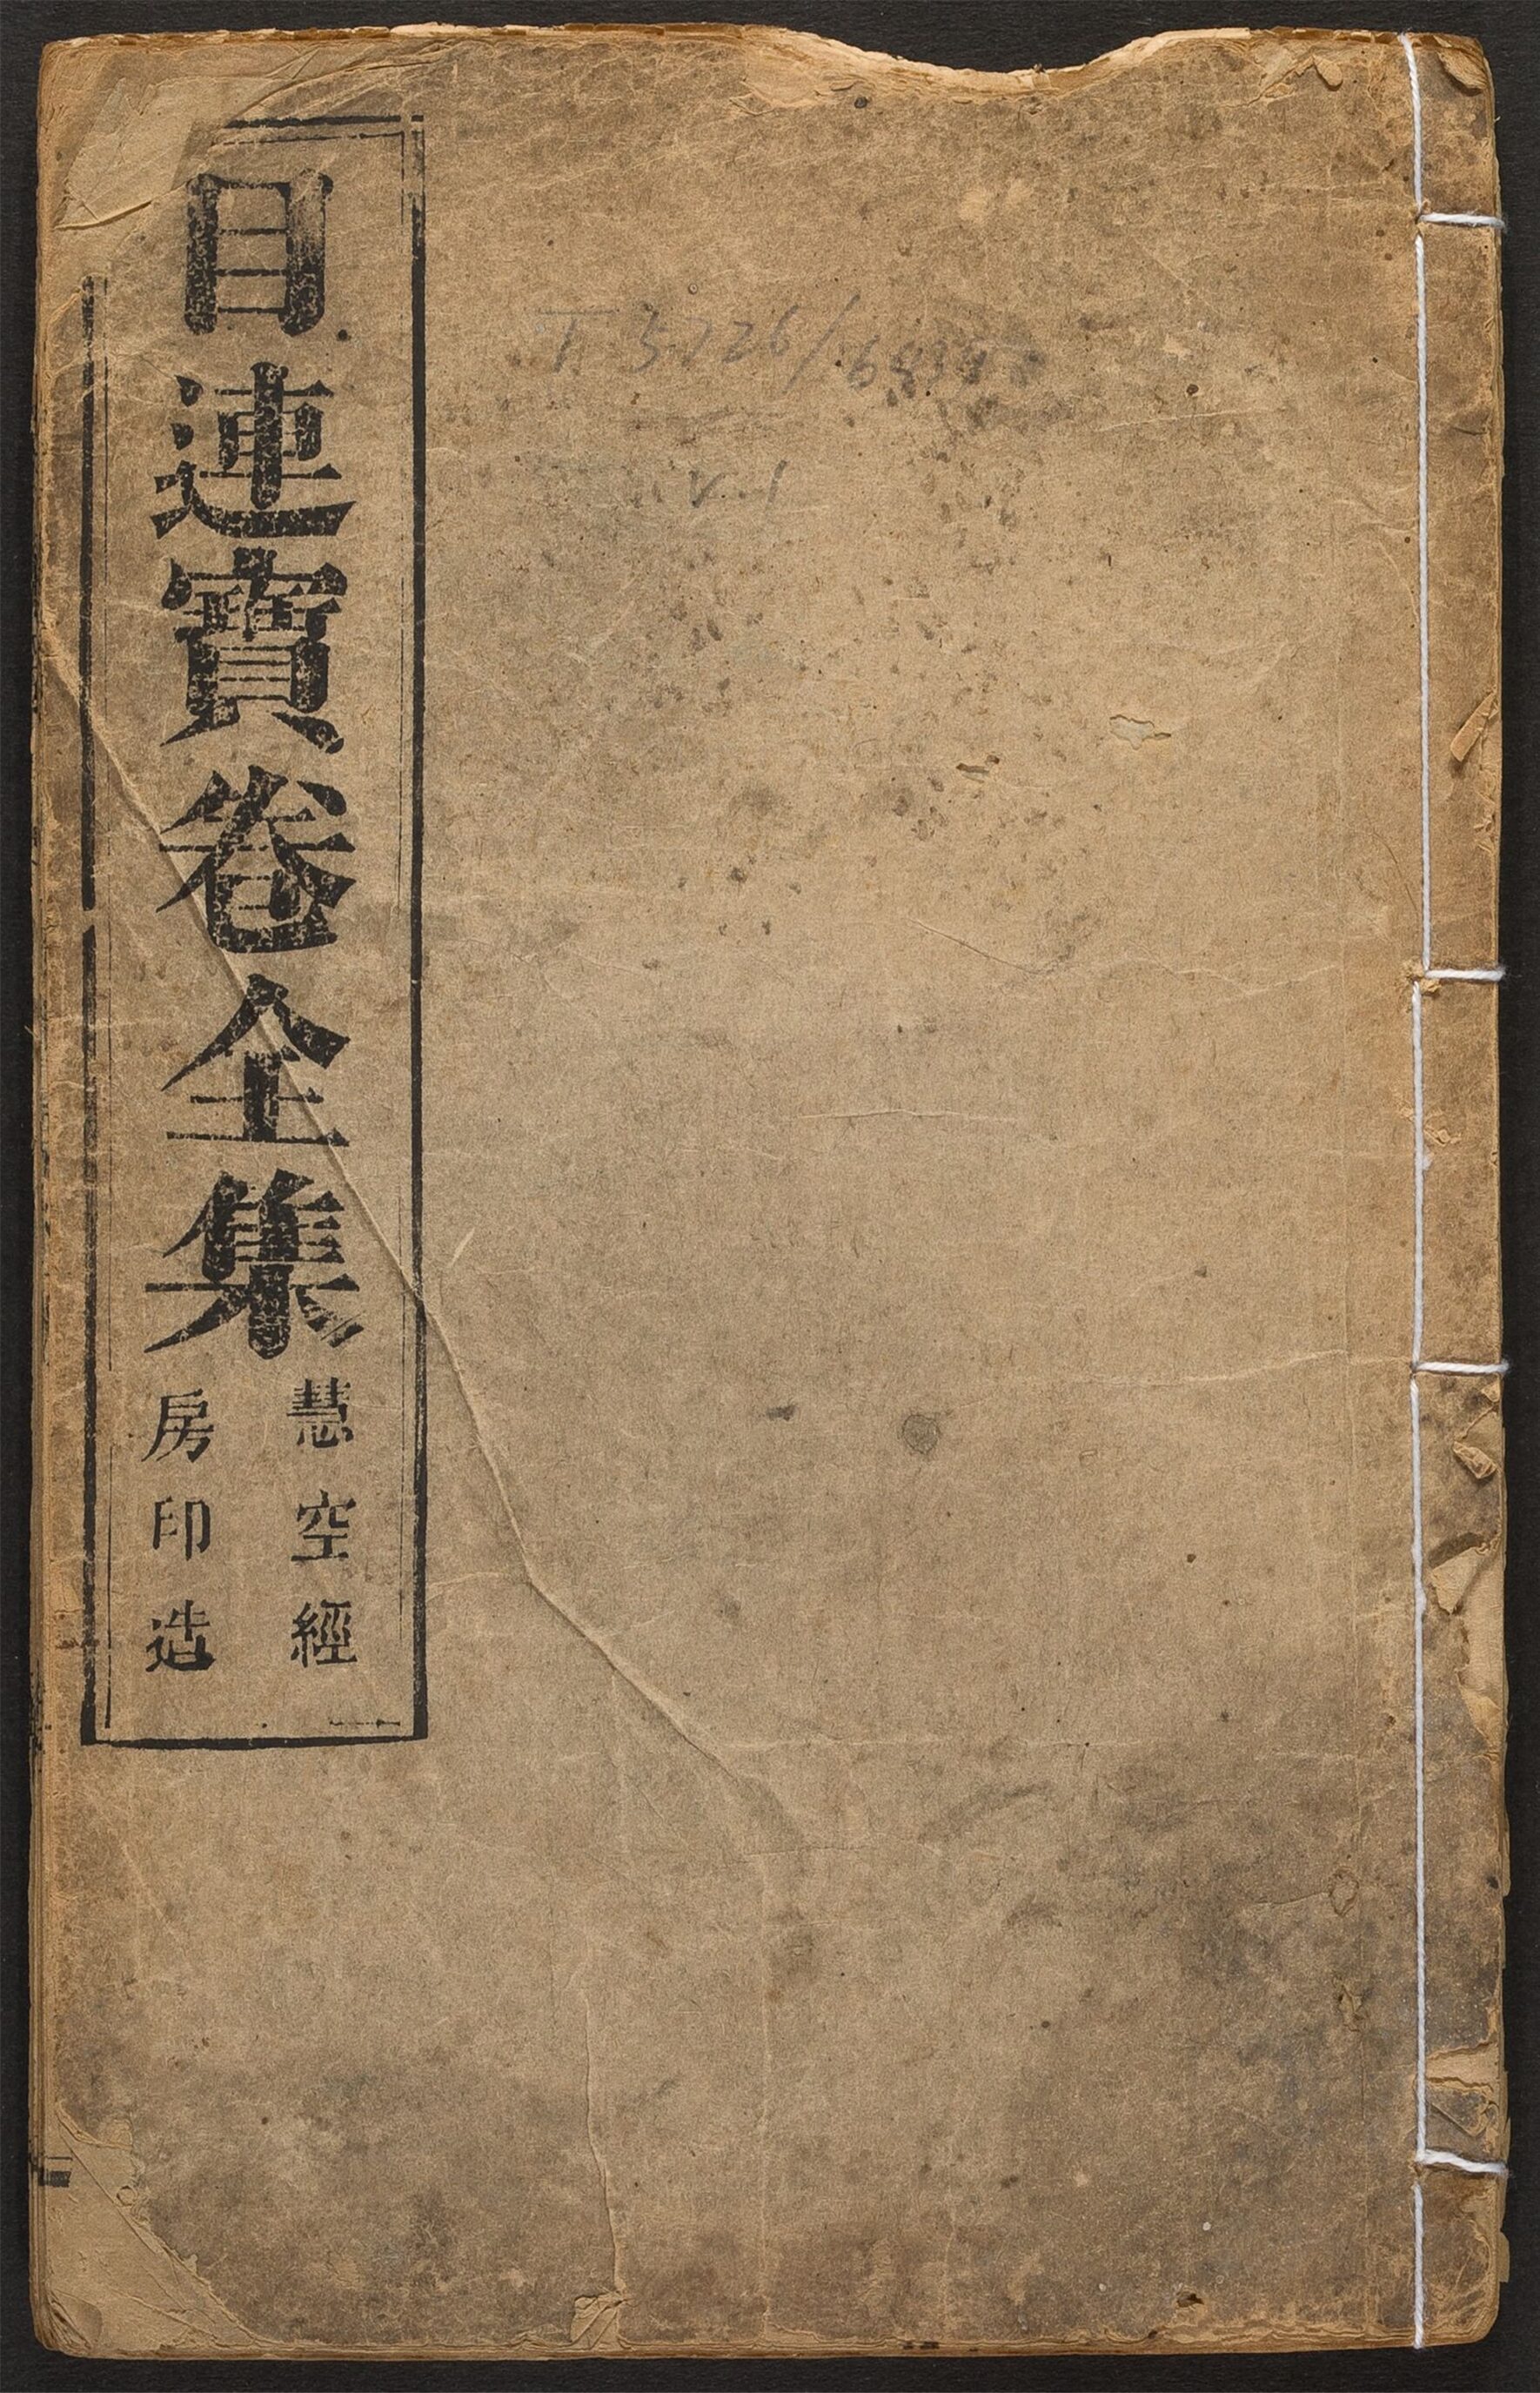 目連寶卷全集
慧空經
房印造
T 5726/
v.1